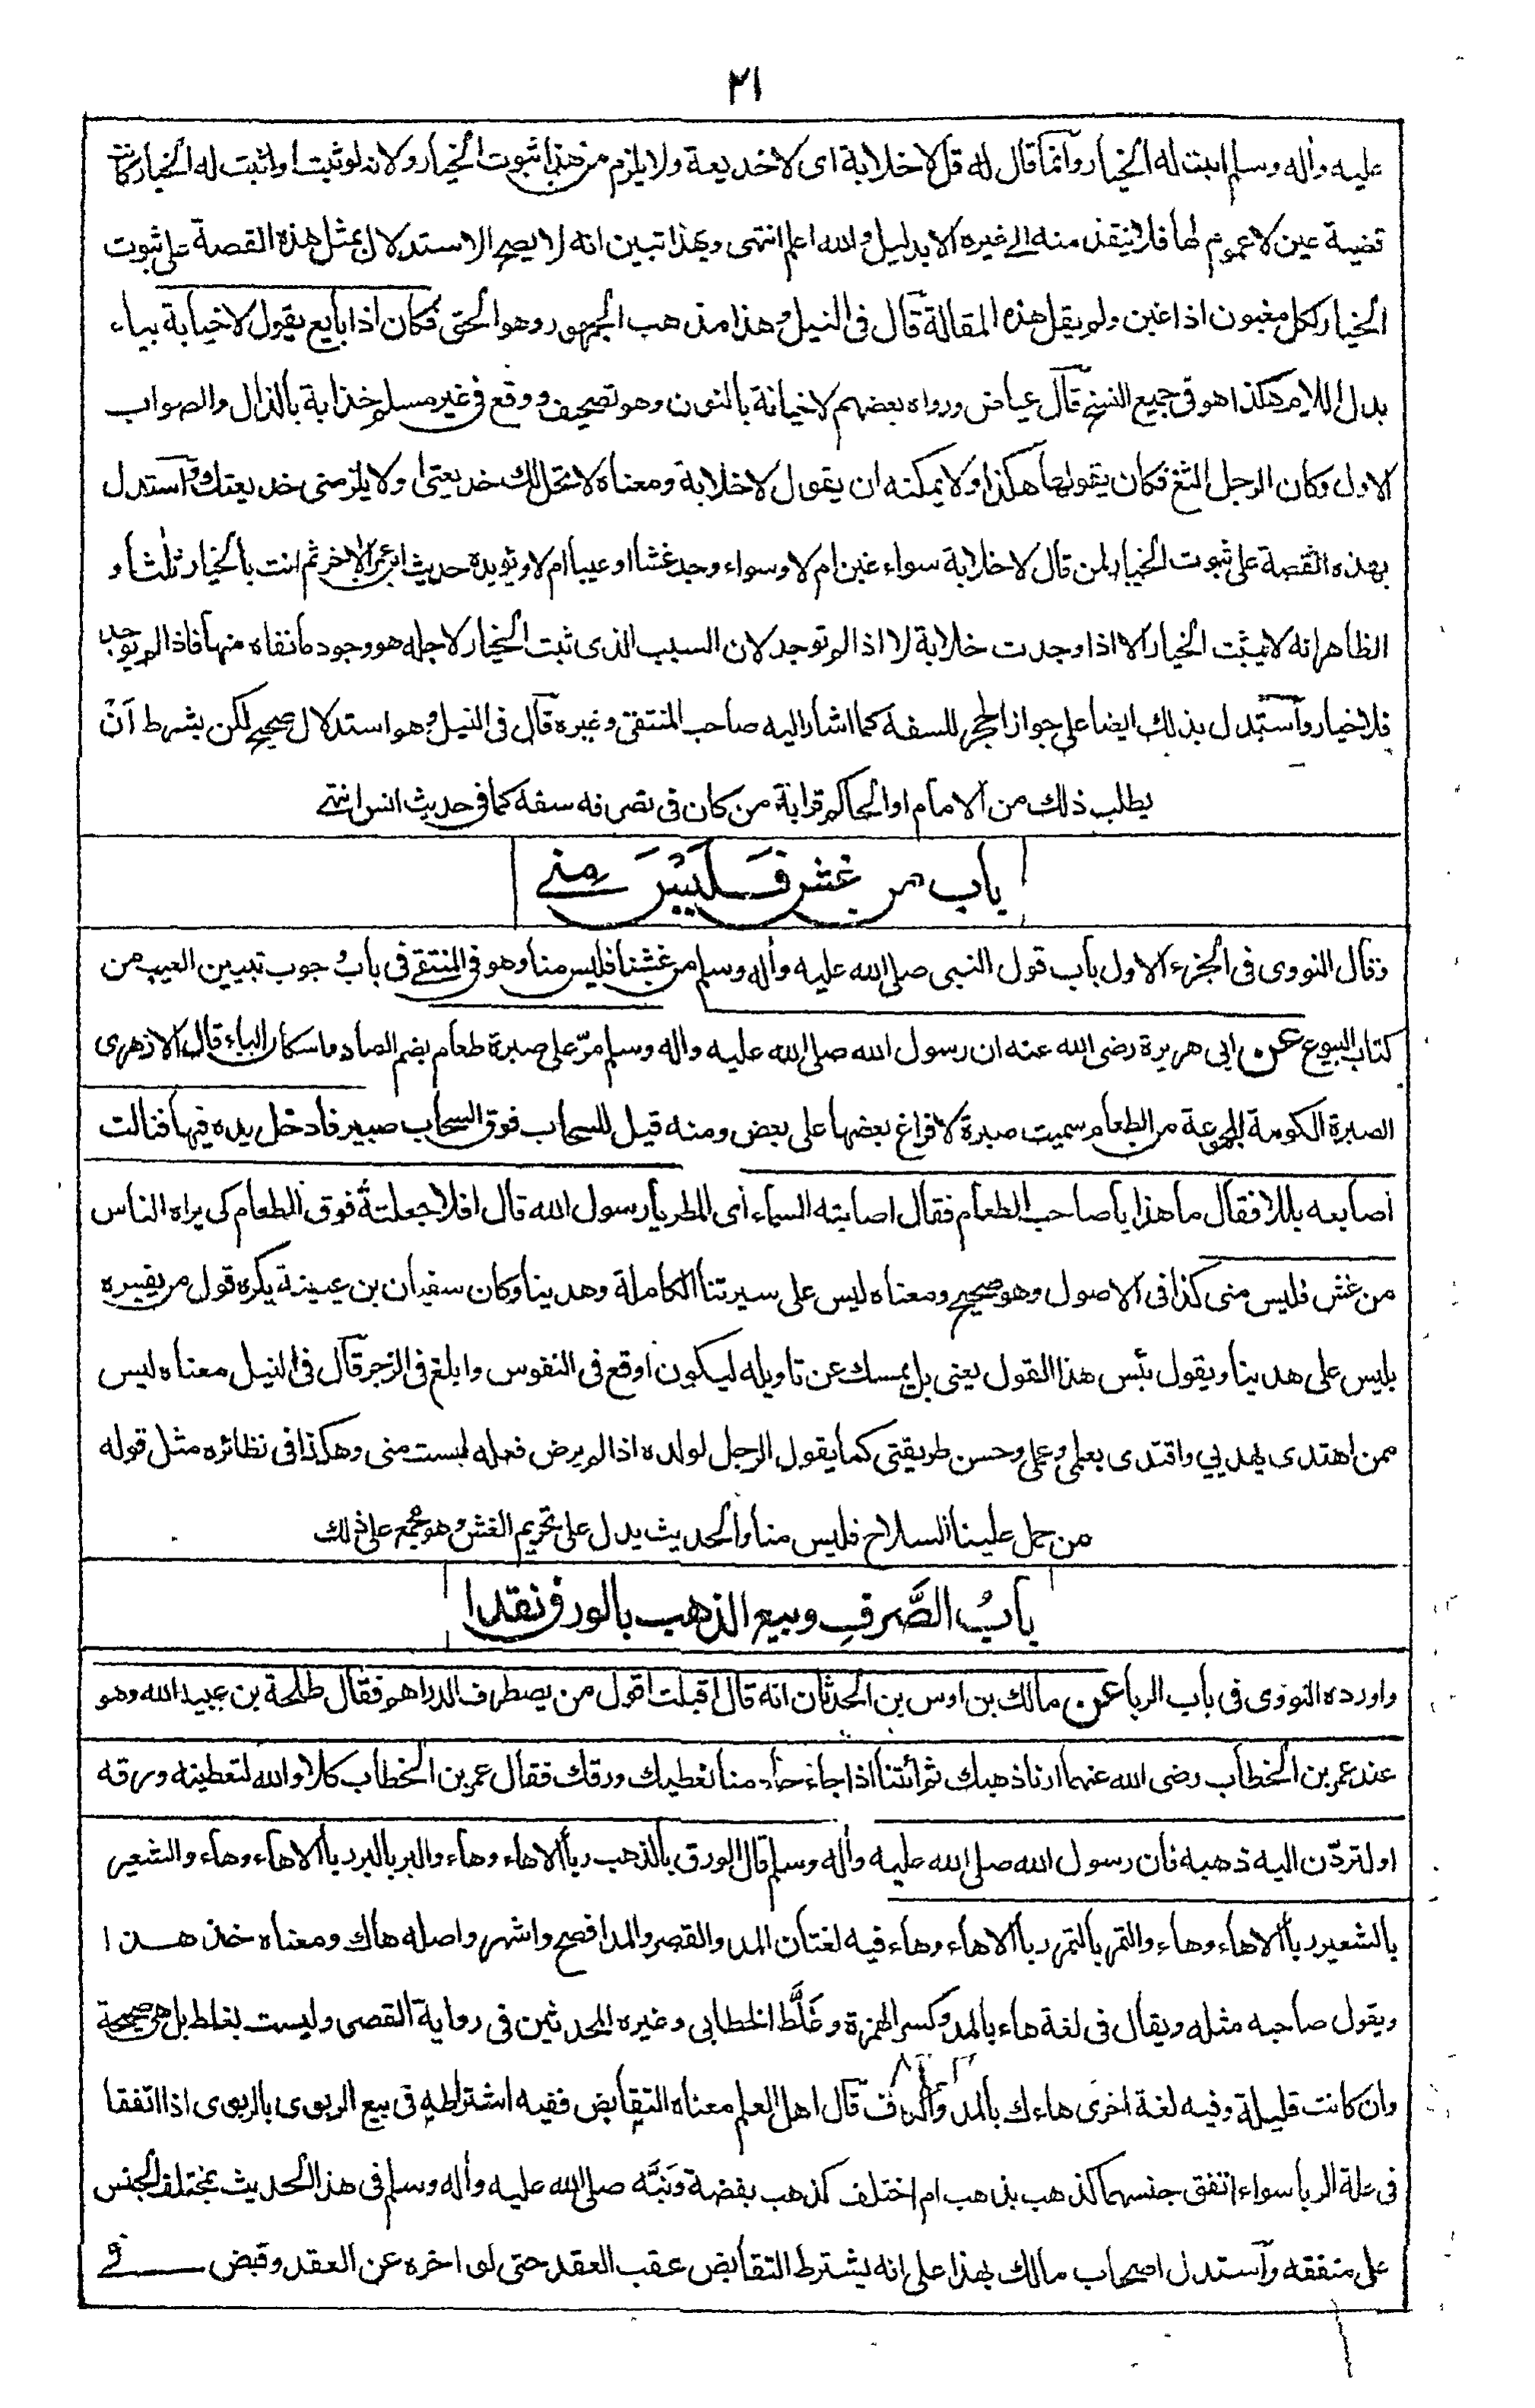 ٢١
عليه واله وسلم اثبت له الخيار وانما قال له قل لا خلابة اى لا خديعة ولا يلزم من هذا ثبوت الخيار ولانه لو ثبت او اثبت له الخيار كانت
قضية عين لا عموم لها فلا ينفذ منه الى غيره الا بدليل والله اعلم انتهى وبهذا تبين انه لا يصح الاستدلال بمثل هذه القصة على ثبوت
الخيار لكل مغبون اذا غبن ولو يقل هذه المقالة قال فى النيل وهذا مذهب الجمهور وهو الحق فكان اذا بايع يقول لا خيابة بياء
بدل اللام هكذا هو فى جميع النسخ قال عياض ورواه بعضهم لا خيانة بالنون وهو تصحيف ووقع فى غير مسلم خذابة بالذال والصواب
الاول وكان الرجل الثغ فكان يقولها هكذا ولا يمكنه ان يقول لا خلابة ومعناه لا تحل لك خديعتى ولا يلزمنى خديعتك واستدل
بهذه القصة على ثبوت الخيار لمن قال لا خلابة سواء غبن ام لا وسواء وجد غشا او عيبا ام لا ويؤيده حديث ابن عمر الاخر ثم انت بالخيار ثلثا و
الظاهر انه لا يثبت الخيار الا اذا وجدت خلابة لا اذا لم توجد لان السبب الذى ثبت الخيار لاجله هو وجود ما نفاه منها فاذا لم يوجد
فلا خيار واستدل بذلك ايضا على جواز الحجر للسفه كما اشار اليه صاحب المنتقى وغيره قال فى النيل وهو استدلال صحيح لكن بشرط ان
يطلب ذلك من الامام او الحاكم قرابة من كان فى تصرفه سفه كما فى حديث انس انتهى
باب من غش فَلَيْسَ مِنِّى
وقال النووى فى الجزء الاول باب قول النبى صلى الله عليه واله وسلم من غشنا فليس منا وهو فى المنتقى فى باب وجوب تبيين العيب من
كتاب البيوع عن ابى هريرة رضى الله عنه ان رسول الله صلى الله عليه واله وسلم مرّ على صبرة طعام بضم الصاد واسكان الباء قال الازهرى
الصبرة الكومة المجموعة من الطعام سميت صبرة لافراغ بعضها على بعض ومنه قيل للسحاب فوق السحاب صبير فادخل يده فيها فنالت
اصابعه بللا فقال ما هذا يا صاحب الطعام فقال اصابته السماء اى المطر يا رسول الله قال افلا جعلته فوق الطعام كى يراه الناس
من غش فليس منى كذا فى الاصول وهو صحيح ومعناه ليس على سيرتنا الكاملة وهدينا وكان سفيان بن عيينة يكره قول من يفسره
بليس على هدينا ويقول بئس هذا القول يعنى بل يمسك عن تاويله ليكون اوقع فى النفوس وابلغ فى الزجر قال فى النيل معناه ليس
ممن اهتدى بهديي واقتدى بعلمى وعملى وحسن طريقتى كما يقول الرجل لولده اذا لم يرض فعله لست منى وهكذا فى نظائره مثل قوله
من حمل علينا السلاح فليس منا والحديث يدل على تحريم الغش وهو مجمع على ذلك
بابُ الصَّرفِ وبيع الذهب بالورق نقدا
واورده النووى فى باب الربا عن مالك بن اوس بن الحدثان انه قال اقبلت اقول من يصطرف الدراهم فقال طلحة بن عبيد الله وهو
عند عمر بن الخطاب رضى الله عنهما ارنا ذهبك ثم ائتنا اذا جاء خادمنا نعطيك ورقك فقال عمر بن الخطاب كلا والله لتعطينه ورقه
او لتردّن اليه ذهبه فان رسول الله صلى الله عليه واله وسلم قال الورق بالذهب ربا الا هاء وهاء والبر بالبر ربا الا هاء وهاء والشعير
بالشعير ربا الا هاء وهاء والتمر بالتمر ربا الا هاء وهاء فيه لغتان المد والقصر والمد افصح واشهر واصله هاك ومعناه خذ هذا
ويقول صاحبه مثله ويقال فى لغة هاء بالمد وكسر الهمزة وغَلَّط الخطابى وغيره المحدثين فى رواية القصر وليست بغلط بل هى صحيحة
وان كانت قليلة وفيه لغة اخرى هاءك بالمد والكاف قال اهل العلم معناه التقابض ففيه اشتراطه فى بيع الربوى بالربوى اذا اتفقا
فى علة الربا سواء اتفق جنسهما كذهب بذهب ام اختلف كذهب بفضة ونَبَّه صلى الله عليه واله وسلم فى هذا الحديث بمختلف الجنس
على متفقه واستدل اصحاب مالك بهذا على انه يشترط التقابض عقب العقد حتى لو اخره عن العقد وقبض فى